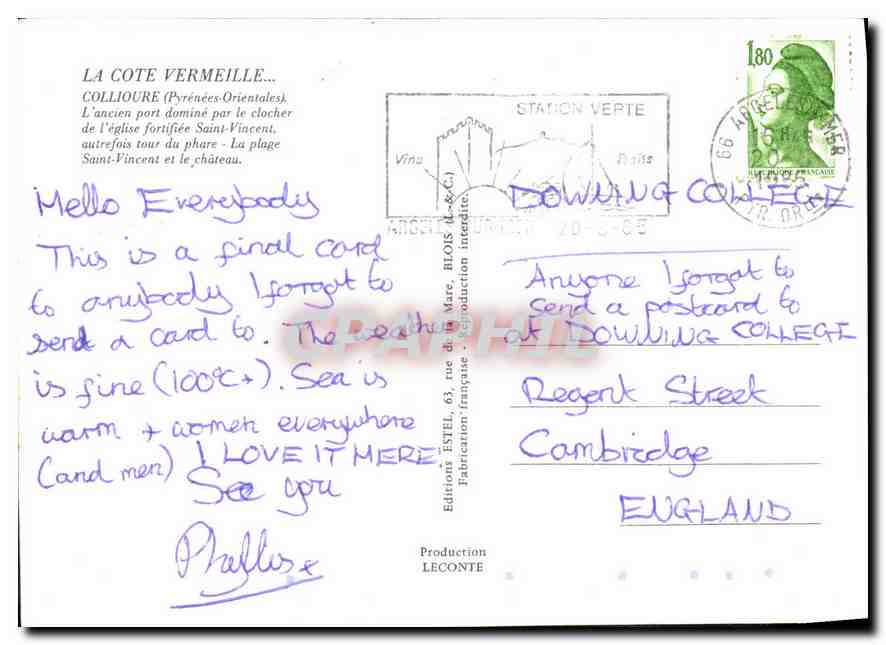 LA COTE VERMEILLE...
COLLIOURE (Pyrénées-Orientales).
L'ancien port dominé par le clocher
de l'église fortifiée Saint-Vincent,
autrefois tour du phare - La plage
Saint-Vincent et le château.
Hello Everybody
This is a final card
to anybody I forgot to
send a card to. The weather
is fine (100°C+). Sea is
warm + women everywhere
(and men) I LOVE IT HERE!
See you
Phyllis x
Editions ESTEL, 63, rue de la Mare, BLOIS (L.-&-C.)
Fabrication française - Reproduction interdite.
Production
LECONTE
STATION VERTE
Vins
ARGELES 20-8-85
1,80
REPUBLIQUE FRANÇAISE
66 ARGELES S MER
20
1985
PYR. ORLES
DOWNING COLLEGE
Anyone I forgot to
send a postcard to
at DOWNING COLLEGE
Regent Street
Cambridge
ENGLAND
CPAPHIL